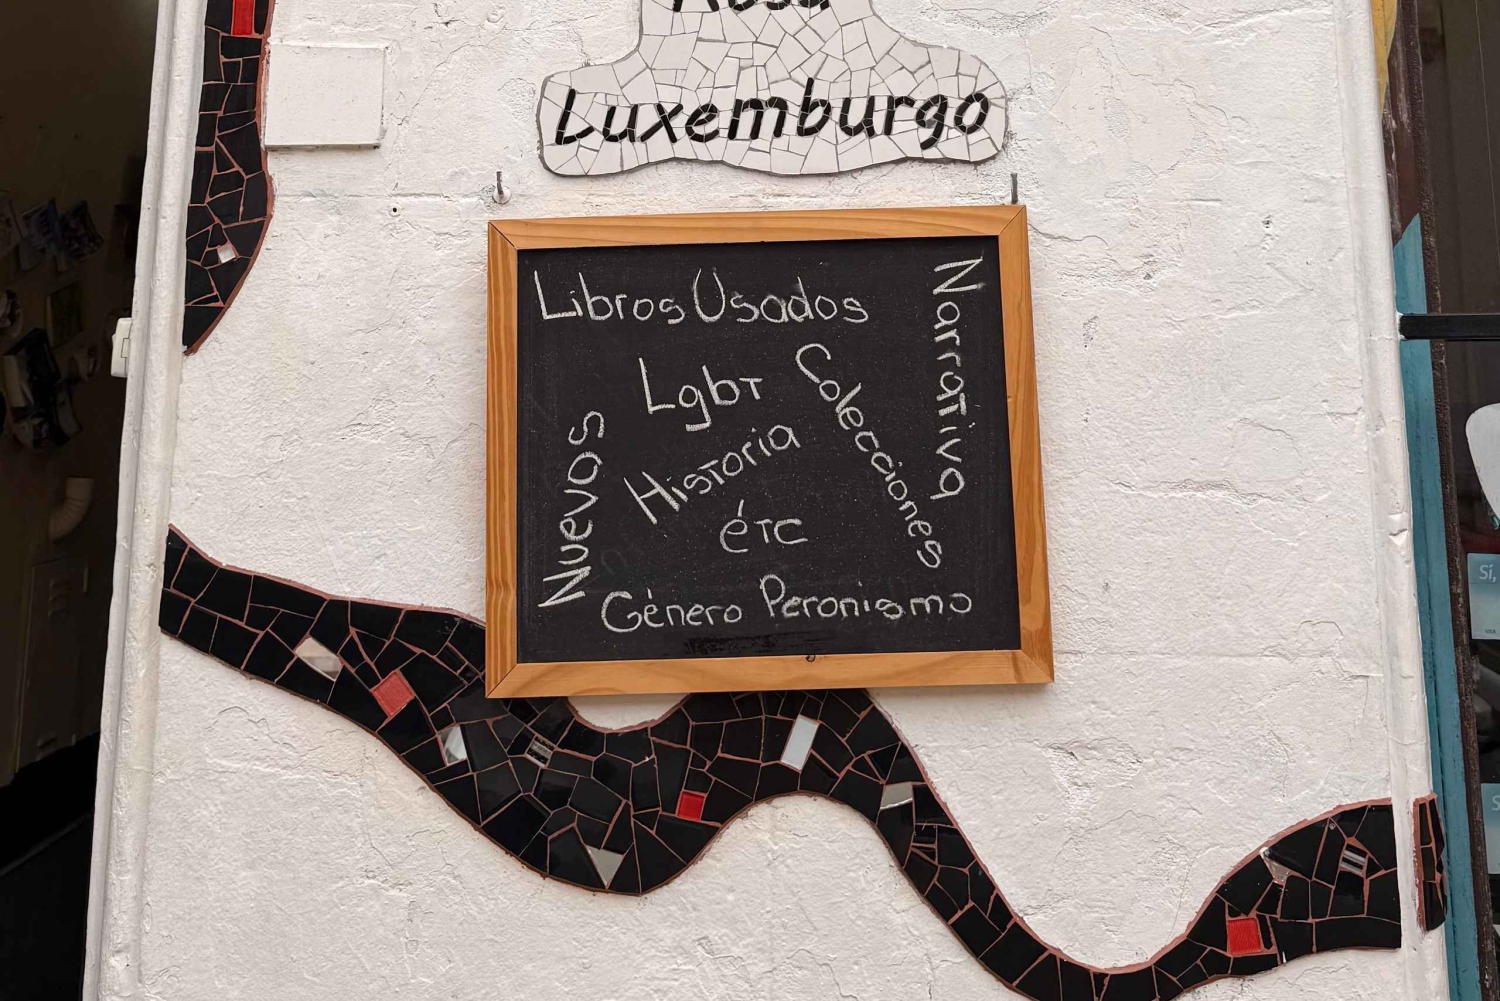 Rosa
Luxemburgo
Libros Usados
Narrativa
Lgbt
Colecciones
Nuevos
Historia
étc
Género Peronismo
Sí,
VISA
S